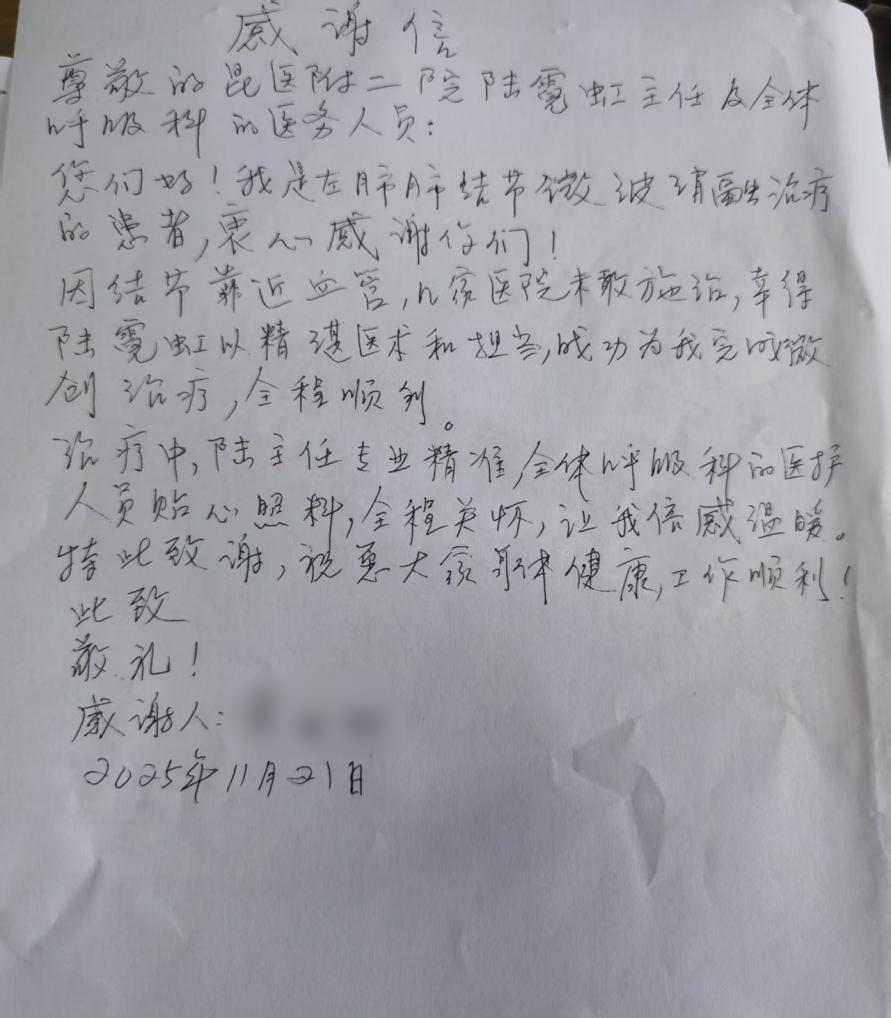 感谢信
尊敬的昆医附二院陆霓虹主任及全体
呼吸科的医务人员:
您们好!我是左肺肺结节微波消融治疗
的患者,衷心感谢你们!
因结节靠近血管,几家医院未敢施治,幸得
陆霓虹以精湛医术和担当,成功为我完成微
创治疗,全程顺利。
治疗中,陆主任专业精准,全体呼吸科的医护
人员贴心照料,全程关怀,让我倍感温暖。
特此致谢,祝愿大家身体健康,工作顺利!
此致
敬礼!
感谢人:
2025年11月21日